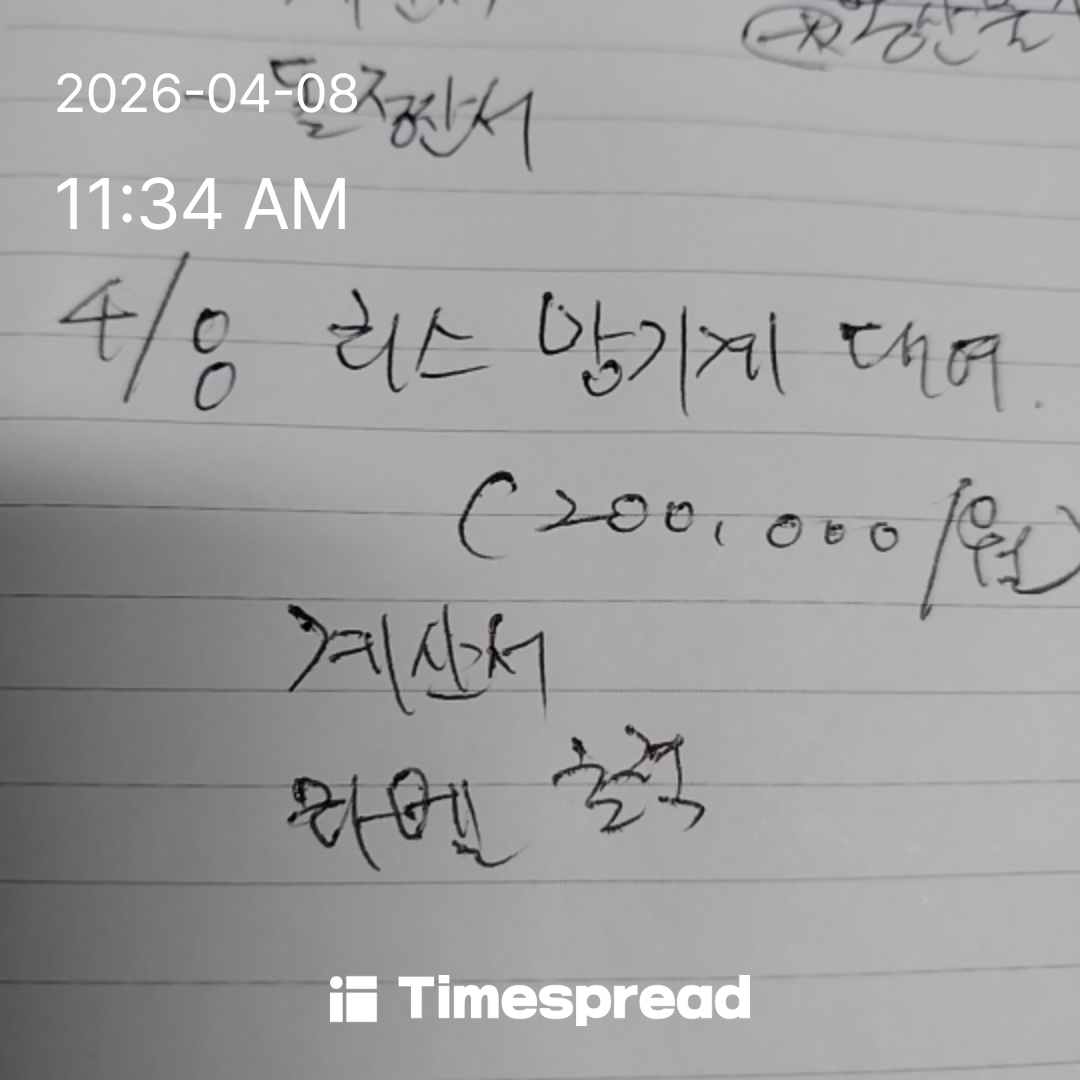 2026-04-08
11:34 AM
4/8 리스 망기계 대여.
(200,000/원)
계산서
라벨 출력
Timespread